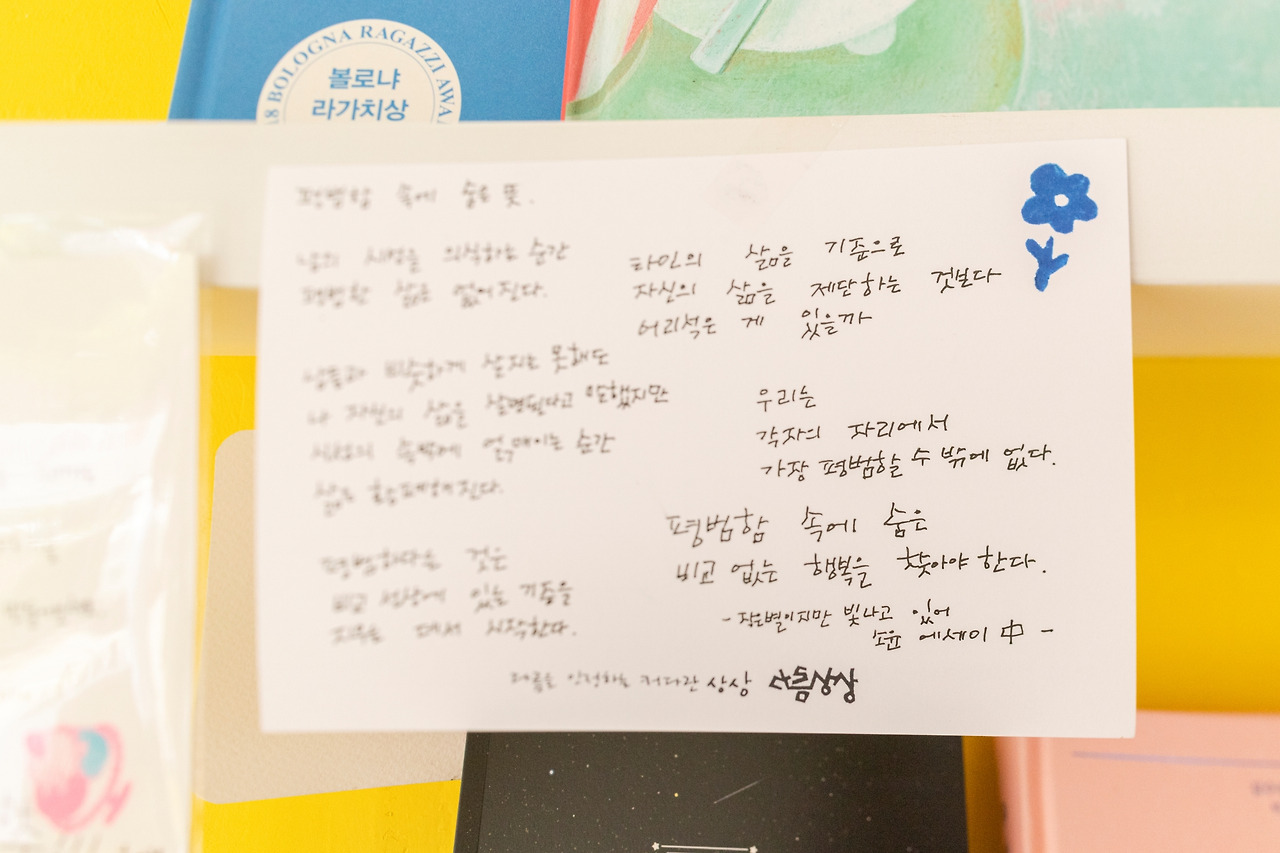 18 BOLOGNA RAGAZZI AWA
볼로냐
라가치상
평범함 속에 숨은 뜻.
남의 시선을 의식하는 순간
평범한 삶은 없어진다.
남들과 비슷하게 살지는 못해도
나 자신의 삶을 살면된다고 말했지만
얽매이는 순간
삶은
평범하다는 것은
비교 선상에 있는 기준을
지우는 데서 시작한다.
타인의 삶을 기준으로
자신의 삶을 제단하는 것보다
어리석은 게 있을까
우리는
각자의 자리에서
가장 평범할 수 밖에 없다.
평범함 속에 숨은
비교 없는 행복을 찾아야 한다.
- 작은별이지만 빛나고 있어
소윤 에세이 中 -
다름을 인정하는 커다란 상상 다름상상